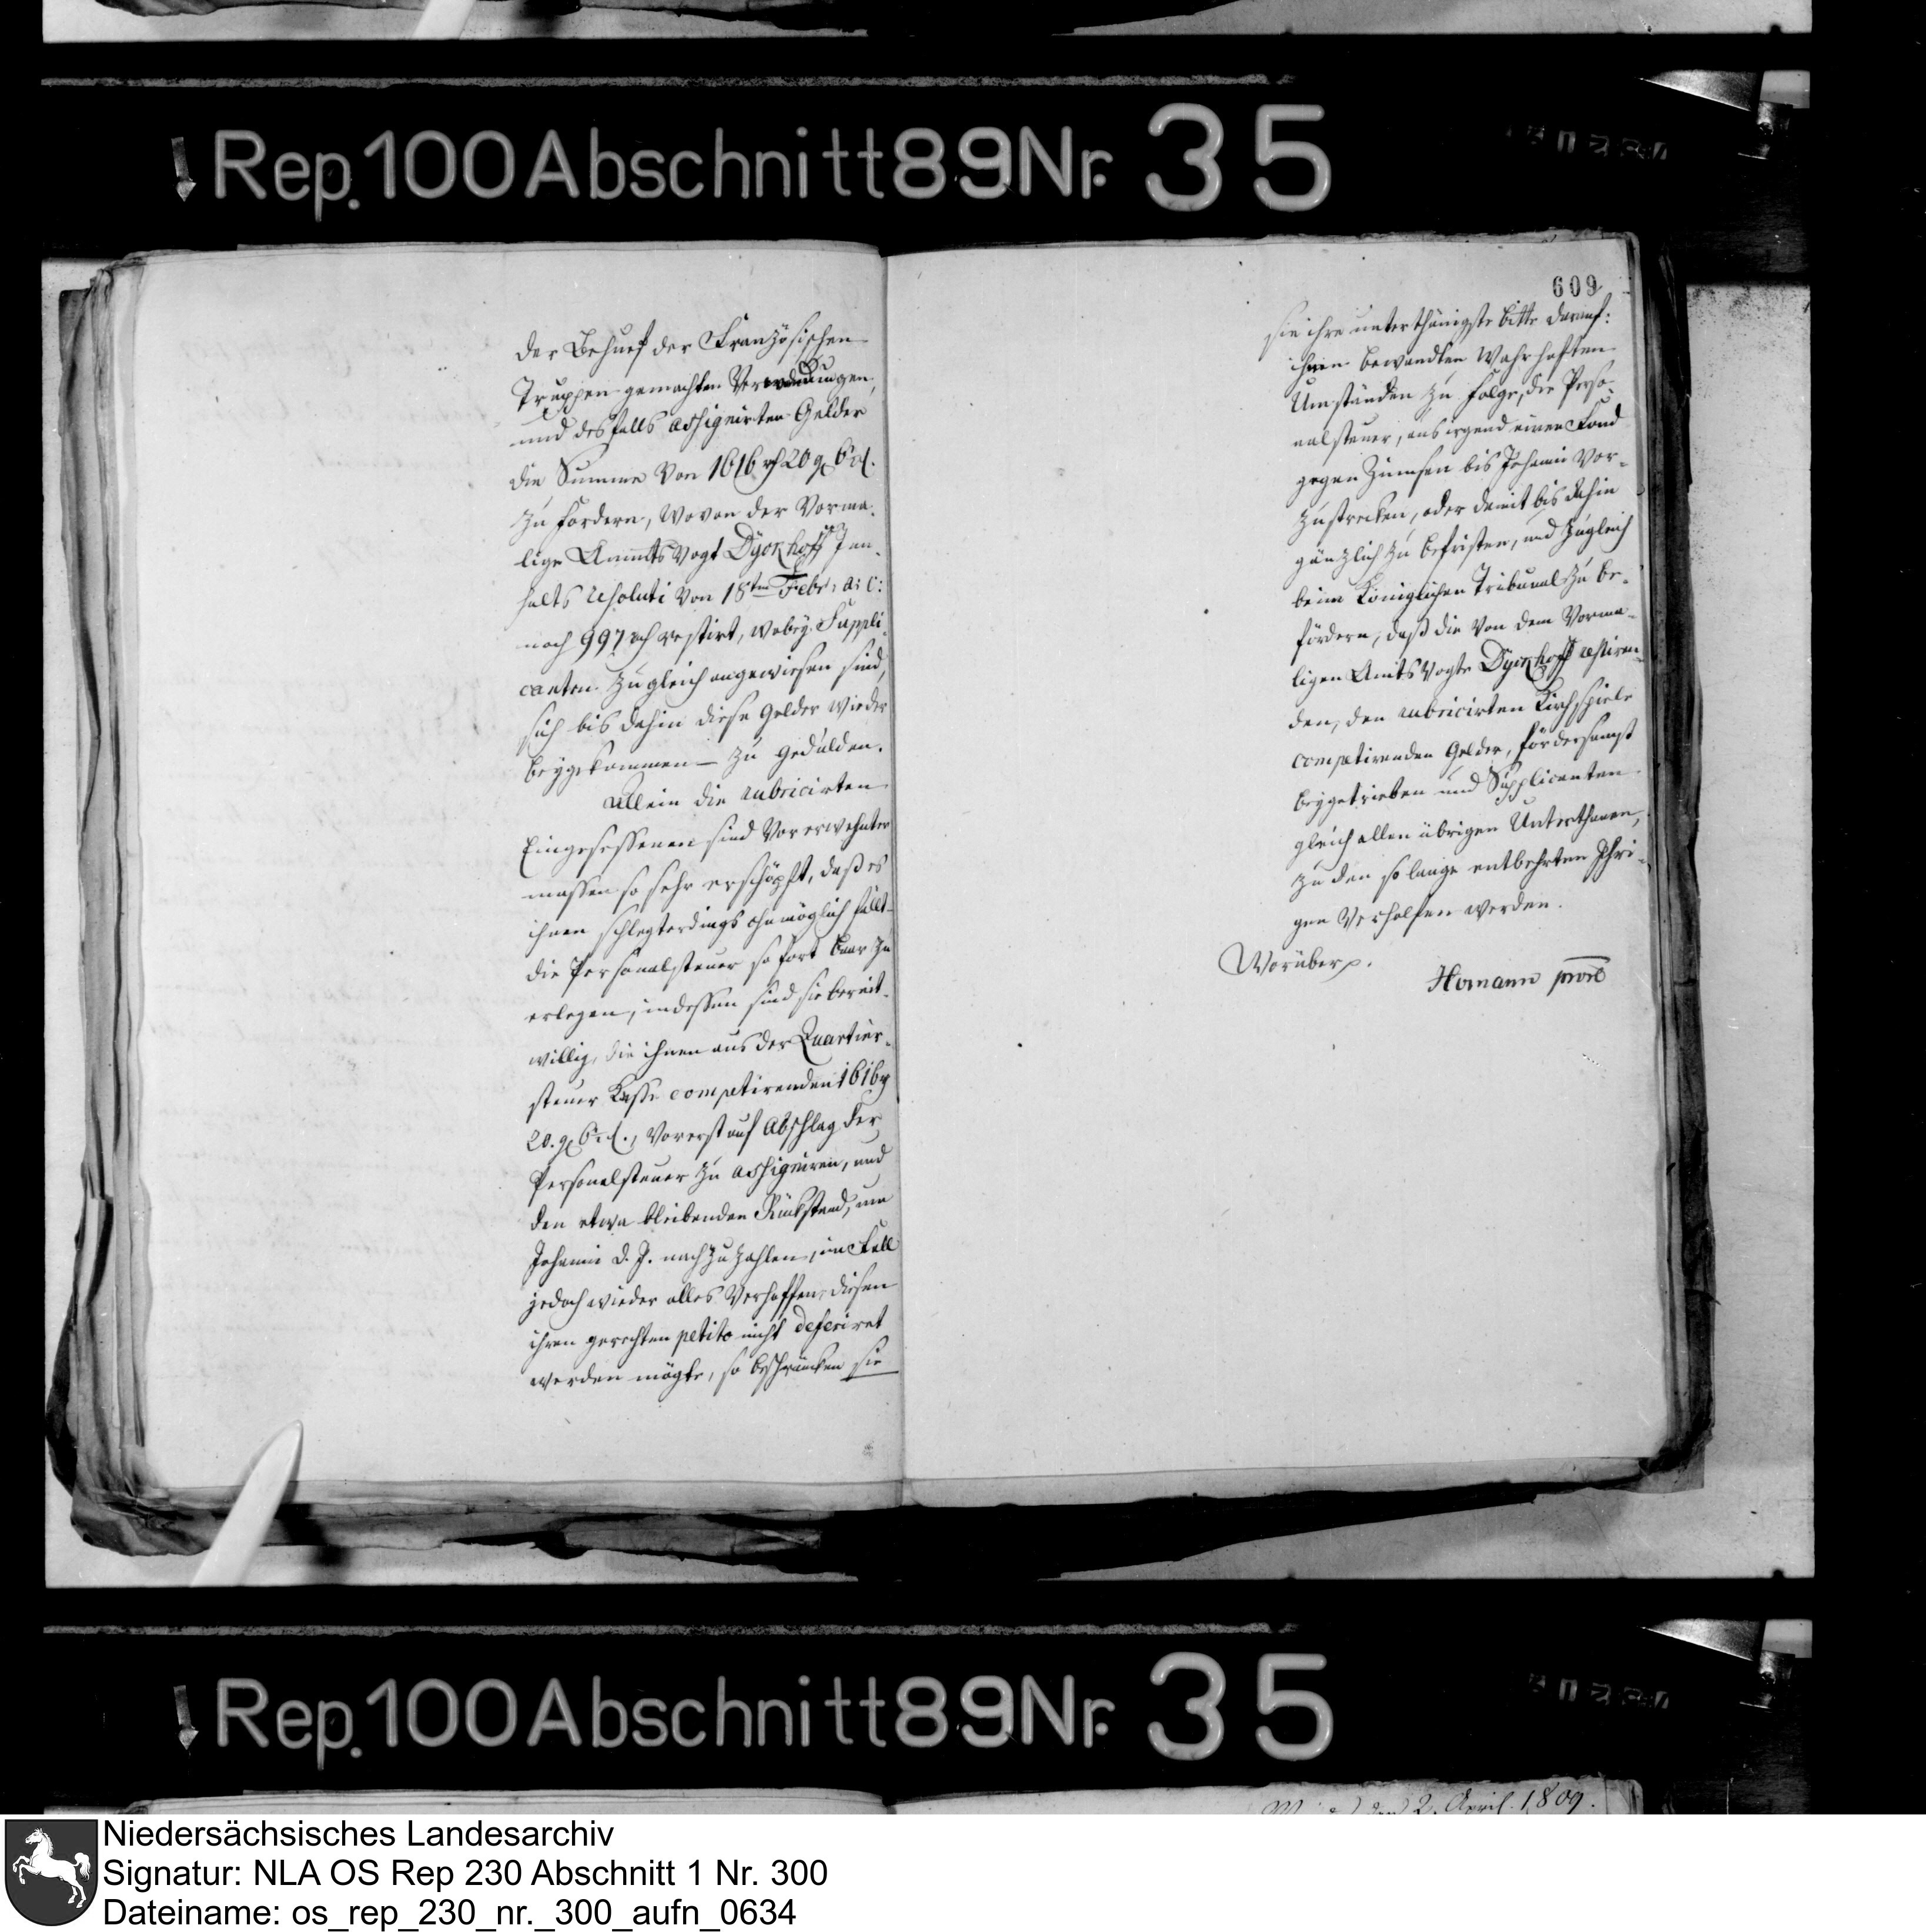 Rep. 100 Abschnitt 89 Nr. 35
der Behuef der Französischen
Truppen gemachten Verwendungen,
und desfalls assignirten Gelder
die Summe von 1616 rh 20 g 6 d.
zu fordern, wovon der vorma-
lige Ammts Vogt Dyckhoff In-
halts resoluti von 18ten Febr: a: c:
noch 997 rh restirt, wobey Suppli-
canten zugleich angewiesen sind,
sich bis dahin diese Gelder wieder
beygekommen zu gedulden.
Allein die rubricirten
Eingesessenen sind vorerwehnter
massen so sehr erschöpft, daß es
ihnen schlegterdings ohnmöglich fällt
die Personalsteuer so fort baar zu
erlegen, indessen sind sie bereit-
willig, die ihnen aus der Quartier-
steuer Kasse competirenden 1616 rh
20. g 6 d., vorerst auf Abschlag der
Personalsteuer zu assigniren, und
den etwa bleibenden Rückstand, um
Johanni d. J. nachzuzahlen, im Fall
jedoch wieder alles Verhoffen diesen
ihren gerechten petito nicht deferiret
werden mögte, so beschränken sie
609
sie ihre unterthänigste bitte darauf:
ihren bewandten Wahrhaften
Umständen zu folge, die Perso-
nalsteuer, aus irgend einen Fond
gegen Zinnsen bis Johanni vor-
zustrecken, oder damit bis dahin
gänzlich zu befristen, und zugleich
beim Königlichen Tribunal zu be-
fördern, daß die von dem Vorma-
ligen Amts Vogte Dyckhoff restiren-
den, den rubricirten Kirchspiele
competirenden Gelder, fördersamst
beygetrieben und Supplicanten
gleich allen übrigen Unterthanen,
zu den so lange entbehrten Ihri-
gen verholfen werden.
Worüber p.
Homann
Rep. 100 Abschnitt 89 Nr. 35
den 2. April. 1809.
Niedersächsisches Landesarchiv
Signatur: NLA OS Rep 230 Abschnitt 1 Nr. 300
Dateiname: os_rep_230_nr._300_aufn_0634